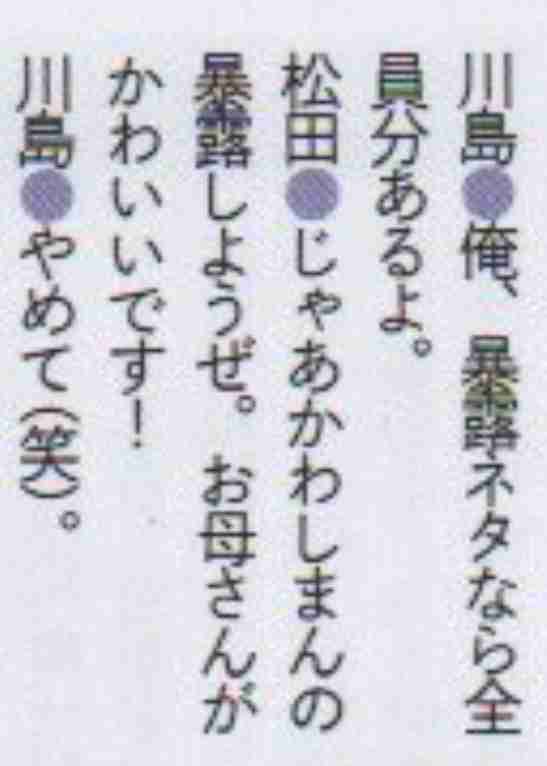 川島●俺、暴露ネタなら全
員分あるよ。
松田●じゃあかわしまんの
暴露しようぜ。お母さんが
かわいいです！
川島●やめて（笑）。